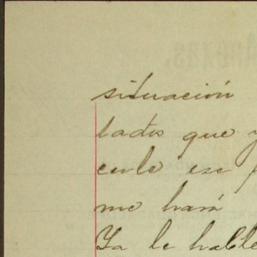 situación
lados que y
cerlo ese p
me hará
Ya le hablé